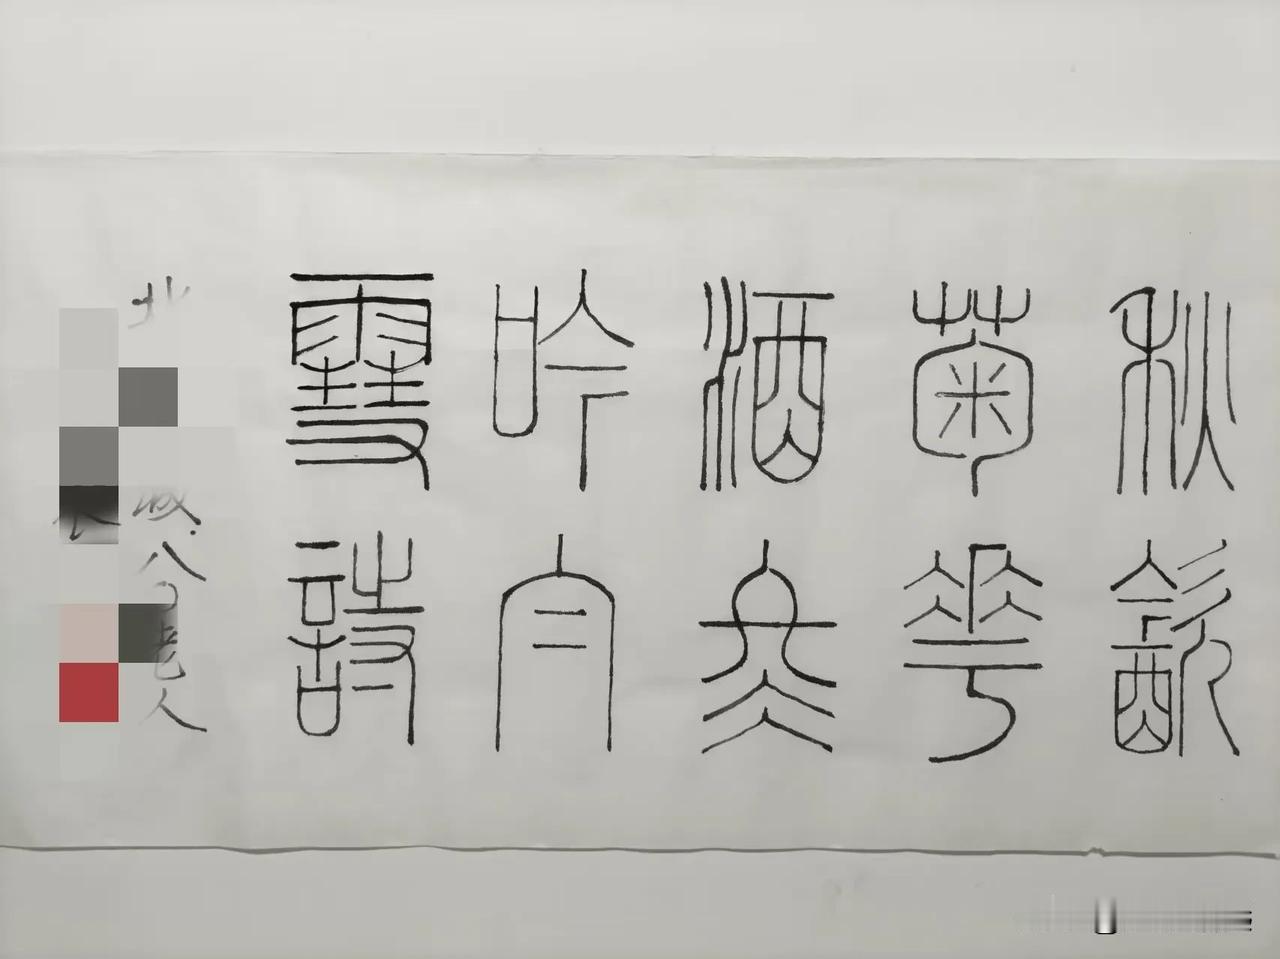 秋飲
菊華
酒冬
吟白
雪詩
北 城八 老人